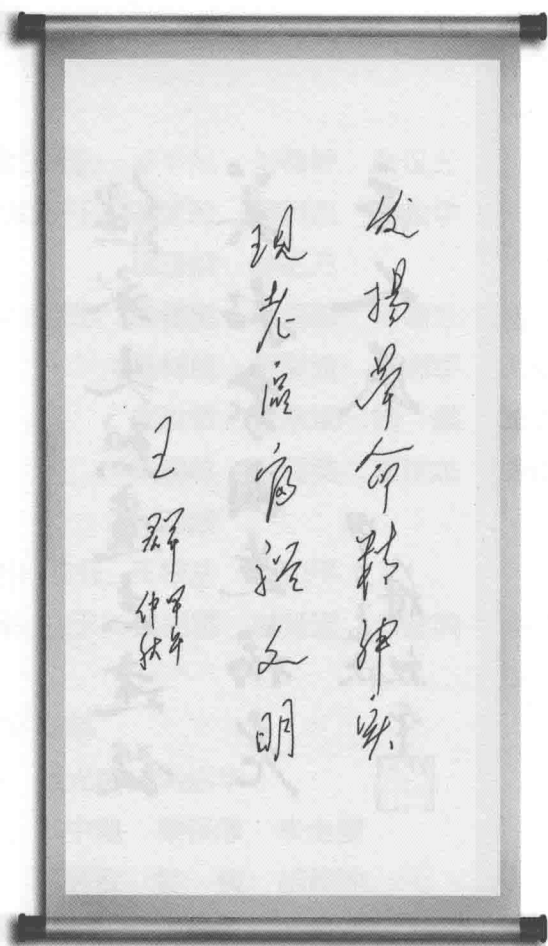 发揚革命精神实
現老区富强文明
王群
甲午
仲秋